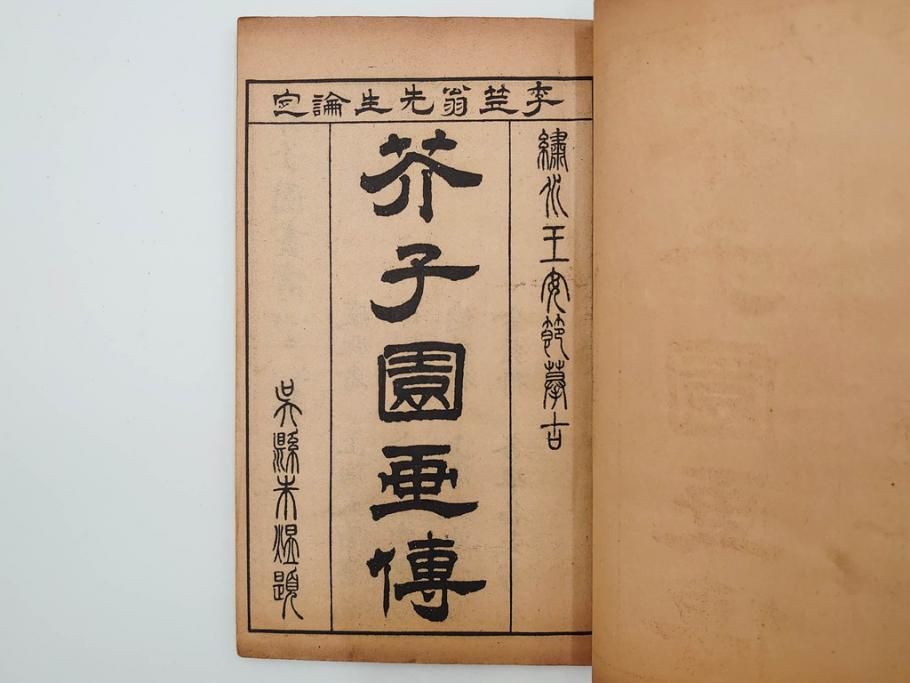 李笠翁先生論定
繡水王安節摹古
芥子園画傳
吳縣朱熅題